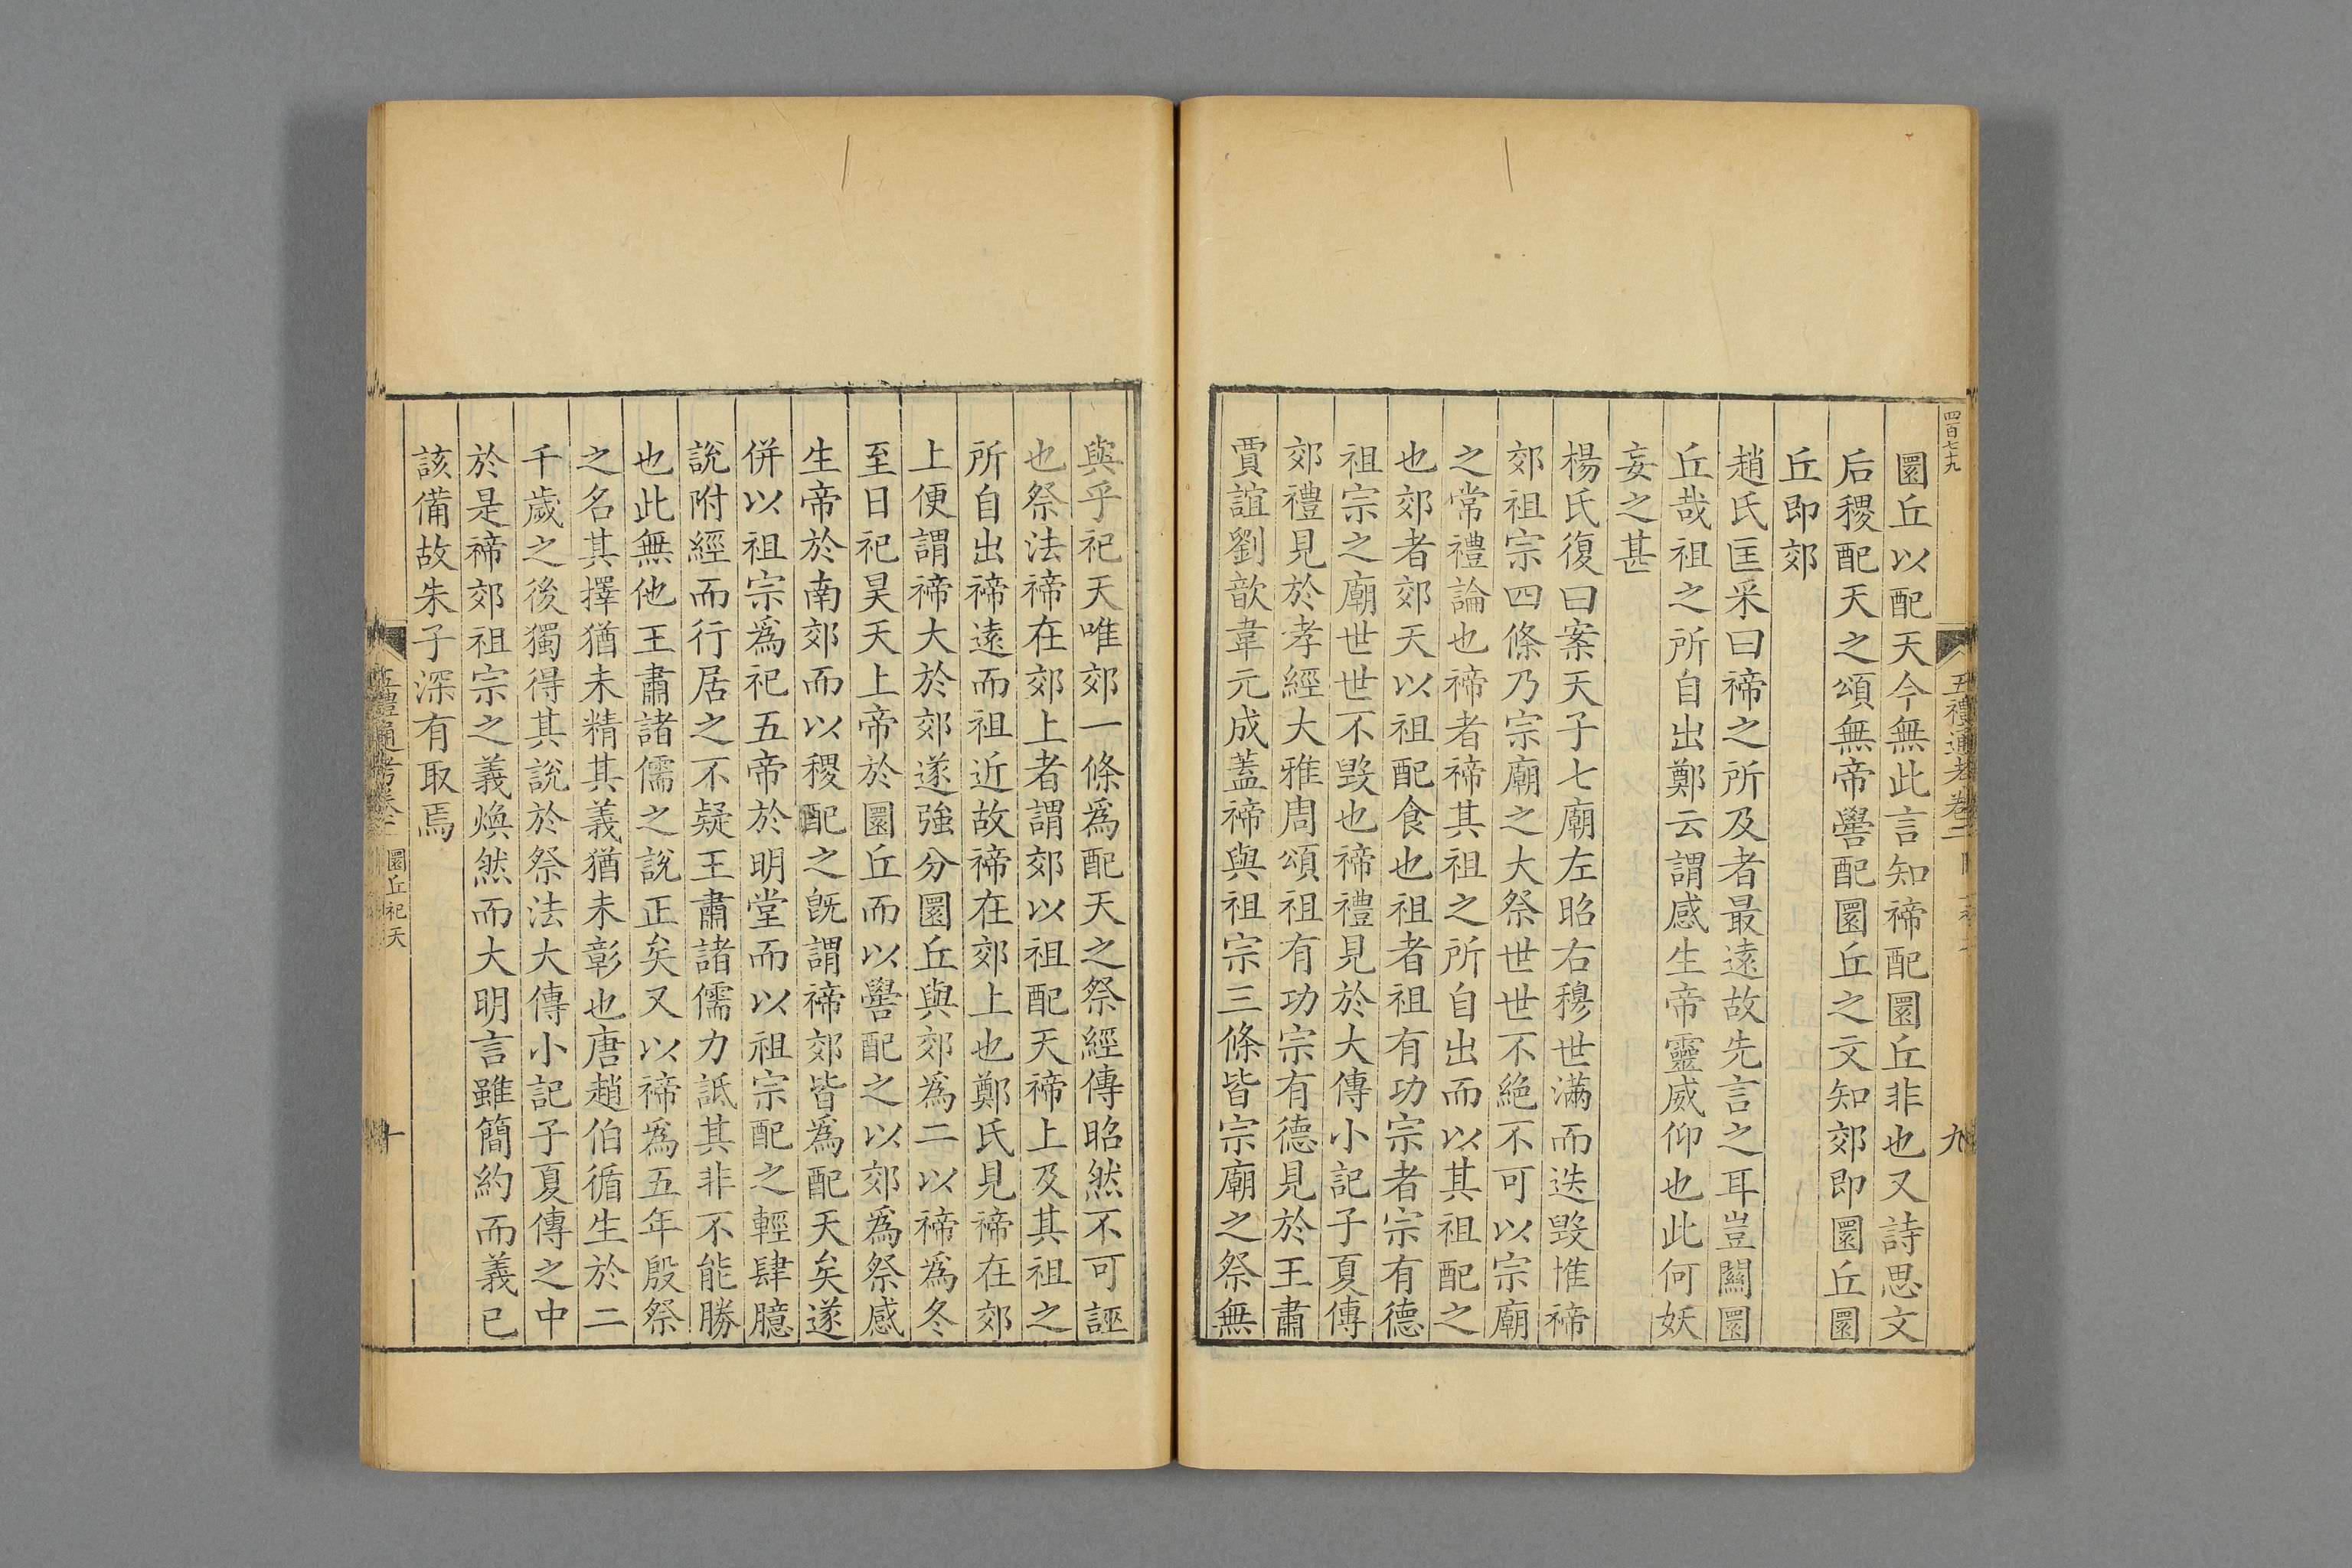 四百七十九
五禮通考卷二
九
圜丘以配天今無此言知禘配圜丘非也又詩思文
后稷配天之頌無帝嚳配圜丘之文知郊即圜丘圜
丘即郊
趙氏匡采曰禘之所及者最遠故先言之耳豈關圜
丘哉祖之所自出鄭云謂感生帝靈威仰也此何妖
妄之甚
楊氏復曰案天子七廟左昭右穆世滿而迭毀惟禘
郊祖宗四條乃宗廟之大祭世世不絕不可以宗廟
之常禮論也禘者禘其祖之所自出而以其祖配之
也郊者郊天以祖配食也祖者祖有功宗者宗有德
祖宗之廟世世不毀也禘禮見於大傳小記子夏傳
郊禮見於孝經大雅周頌祖有功宗有德見於王肅
賈誼劉歆韋元成蓋禘與祖宗三條皆宗廟之祭無
與乎祀天唯郊一條爲配天之祭經傳昭然不可誣
也祭法禘在郊上者謂郊以祖配天禘上及其祖之
所自出禘遠而祖近故禘在郊上也鄭氏見禘在郊
上便謂禘大於郊遂強分圜丘與郊爲二以禘爲冬
至日祀昊天上帝於圜丘而以嚳配之以郊爲祭感
生帝於南郊而以稷配之旣謂禘郊皆爲配天矣遂
併以祖宗爲祀五帝於明堂而以祖宗配之輕肆臆
說附經而行居之不疑王肅諸儒力詆其非不能勝
也此無他王肅諸儒之說正矣又以禘爲五年殷祭
之名其擇猶未精其義猶未彰也唐趙伯循生於二
千歲之後獨得其說於祭法大傳小記子夏傳之中
於是禘郊祖宗之義煥然而大明言雖簡約而義已
該備故朱子深有取焉
五禮通考卷二
圜丘祀天
十